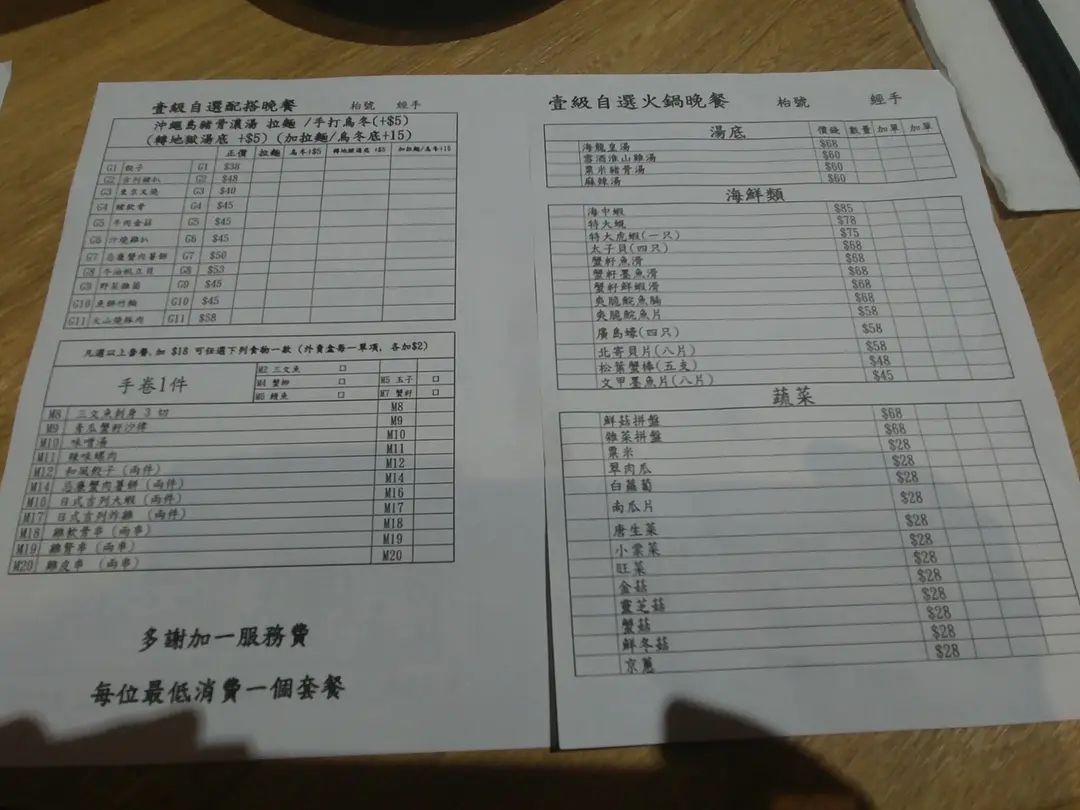 壹級自選配搭晚餐 枱號 經手
沖繩島豬骨濃湯 拉麵 /手打烏冬(+$5)
(轉地獄湯底 +$5) (加拉麵/烏冬底+15)
正價 拉麵 烏冬+$5 轉地獄湯底 +$5 加拉麵/烏冬+15
G1 餃子 G1 $38
G2 吉列豬扒 G2 $48
G3 東京叉燒 G3 $40
G4 豬軟骨 G4 $45
G5 牛肉金菇 G5 $45
G6 汁燒雞扒 G6 $45
G7 忌廉蟹肉薯餅 G7 $50
G8 牛油帆立貝 G8 $53
G9 野菜雜菌 G9 $45
G10 魚餅竹輪 G10 $45
G11 火山燒豚肉 G11 $58
凡選以上套餐,加 $18 可任選下列食物一款 (外賣盒每一單項, 各加$2)
手卷1件
M2 三文魚 口
M4 蟹柳 口 M5 玉子 口
M6 鰻魚 口 M7 蟹籽 口
M8 三文魚刺身 3 切 M8
M9 青瓜蟹籽沙律 M9
M10 味噌湯 M10
M11 辣味螺肉 M11
M12 和風餃子 (兩件) M12
M14 忌廉蟹肉薯餅 (兩件) M14
M16 日式吉列大蝦 (兩件) M16
M17 日式吉列炸雞 (兩件) M17
M18 雞軟骨串 (兩串) M18
M19 雞腎串 (兩串) M19
M20 雞皮串 (兩串) M20
多謝加一服務費
每位最低消費一個套餐
壹級自選火鍋晚餐 枱號 經手
湯底 價錢 數量 加單 加單
海龍皇湯 $68
雲酒淮山雞湯 $60
粟米豬骨湯 $60
麻辣湯 $60
海鮮類
海中蝦 $85
特大蜆 $78
特大虎蝦(一只) $75
太子貝(四只) $68
蟹籽魚滑 $68
蟹籽墨魚滑 $68
蟹籽鮮蝦滑 $68
爽脆鯇魚腩 $68
爽脆鯇魚片 $58
廣島蠔(四只) $58
北寄貝片(八片) $58
松葉蟹棒(五支) $48
文甲墨魚片(八片) $45
蔬菜
鮮菇拼盤 $68
雜菜拼盤 $68
粟米 $28
翠肉瓜 $28
白蘿蔔 $28
南瓜片 $28
唐生菜 $28
小棠菜 $28
旺菜 $28
金菇 $28
靈芝菇 $28
蟹菇 $28
鮮冬菇 $28
京蔥 $28